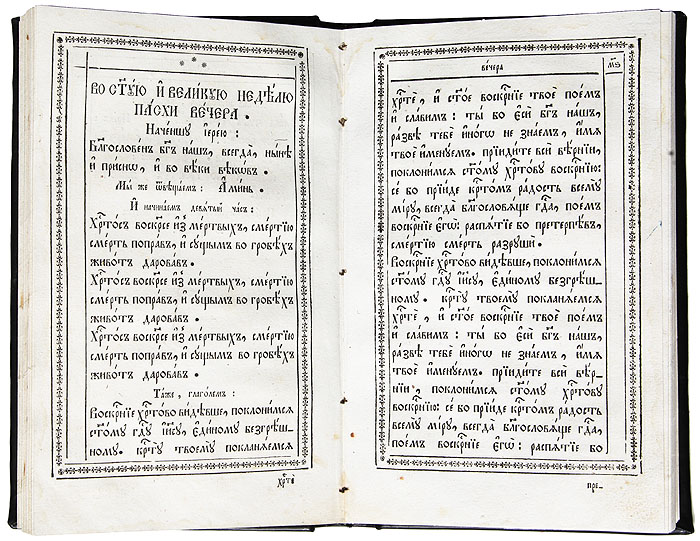 * * *
во ст҃ꙋю и҆ вели́кꙋю недѣ́лю
па́схи ве́чера .
Наче́ншꙋ і҆ере́ю :
Бл҃гослове́нъ бг҃ъ на́шъ , всегда̀ , ны́нѣ
и҆ при́снѡ , и҆ во вѣ́ки вѣкѡ́въ .
Мы́ же ѿвѣща́емъ : А҆ми́нь .
И҆ начина́емъ девѧ́тый ча́съ :
Хрⷭ҇то́съ воскре́се и҆з̾ ме́ртвыхъ , сме́ртїю
сме́рть попра́въ , и҆ сꙋ́щымъ во гробѣ́хъ
живо́тъ дарова́въ .
Хрⷭ҇то́съ воскре́се и҆з̾ ме́ртвыхъ , сме́ртїю
сме́рть попра́въ , и҆ сꙋ́щымъ во гробѣ́хъ
живо́тъ дарова́въ .
Хрⷭ҇то́съ воскре́се и҆з̾ ме́ртвыхъ , сме́ртїю
сме́рть попра́въ , и҆ сꙋ́щымъ во гробѣ́хъ
живо́тъ дарова́въ .
Та́же , глаго́лемъ :
Воскрⷭ҇нїе хрⷭ҇то́во ви́дѣвше , поклони́мсѧ
ст҃о́мꙋ гдⷭ҇ꙋ і҆и҃сꙋ , є҆ди́номꙋ безгрѣ́ш-
номꙋ . крⷭ҇тꙋ̀ твоемꙋ̀ покланѧ́емсѧ
хрⷭ҇тѐ
ве́чера
м҃ѕ
хрⷭ҇тѐ , и҆ ст҃о́е воскрⷭ҇нїе твоѐ пое́мъ
и҆ сла́вимъ : ты́ бо є҆сѝ бг҃ъ на́шъ ,
ра́звѣ тебѐ и҆но́гѡ не зна́емъ , и҆́мѧ
твоѐ и҆менꙋ́емъ . прїиди́те всѝ вѣ́рнїи ,
поклони́мсѧ ст҃о́мꙋ хрⷭ҇то́вꙋ воскрⷭ҇нїю :
се́ бо прїи́де крⷭ҇то́мъ ра́дость всемꙋ̀
мі́рꙋ , всегда̀ бл҃гословѧ́ще гдⷭ҇а , пое́мъ
воскрⷭ҇нїе є҆гѡ̀ : распѧ́тїе бо претерпѣ́въ ,
сме́ртїю сме́рть разрꙋшѝ .
Воскрⷭ҇нїе хрⷭ҇то́во ви́дѣвше , поклони́мсѧ
ст҃о́мꙋ гдⷭ҇ꙋ і҆и҃сꙋ , є҆ди́номꙋ безгрѣ́ш-
номꙋ . крⷭ҇тꙋ̀ твоемꙋ̀ покланѧ́емсѧ
хрⷭ҇тѐ , и҆ ст҃о́е воскрⷭ҇нїе твоѐ пое́мъ
и҆ сла́вимъ : ты́ бо є҆сѝ бг҃ъ на́шъ ,
ра́звѣ тебѐ и҆но́гѡ не зна́емъ , и҆́мѧ
твоѐ и҆менꙋ́емъ . прїиди́те всѝ вѣ́р-
нїи , поклони́мсѧ ст҃о́мꙋ хрⷭ҇то́вꙋ
воскрⷭ҇нїю : се́ бо прїи́де крⷭ҇то́мъ ра́дость
всемꙋ̀ мі́рꙋ , всегда̀ бл҃гословѧ́ще гдⷭ҇а ,
пое́мъ воскрⷭ҇нїе є҆гѡ̀ : распѧ́тїе бо
пре-